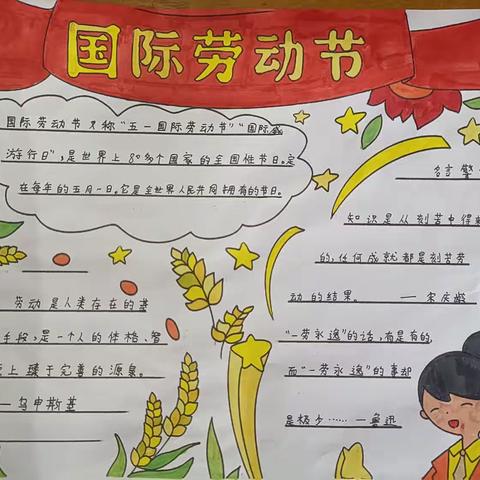 国际劳动节
国际劳动节又称"五一国际劳动节""国际
游行日",是世界上80多个国家的全国性节日。定
在每年的五月一日。它是全世界人民共同拥有的节日。
劳动是人类存在的基
手段,是一个人的体格、智
上臻于完善的源泉。
——乌申斯基
名言警
知识是从刻苦中得
的,任何成就都是刻苦劳
动的结果。 ——宋庆龄
"一劳永逸"的话,有是有的,
而"一劳永逸"的事却
是极少……—鲁迅